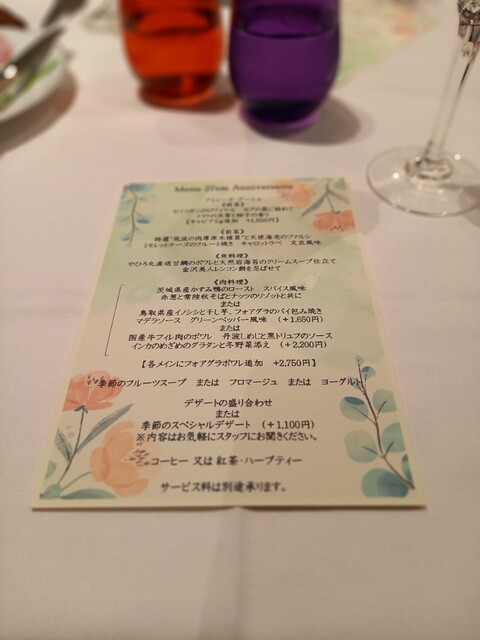 Menu 27em Anniversaire
《前菜》
【キャビア5g追加 +1,650円】
《前菜》
特選"筑波の肉厚原木椎茸"と天使海老のファルシ
ミモレットチーズのクルート焼き キャロットラペ 文旦風味
《魚料理》
やひろ丸直送甘鯛のポワレと天然岩海苔のクリームスープ仕立て
金沢美人レンコン餅を忍ばせて
《肉料理》
茨城県産かすみ鴨のロースト スパイス風味
赤葱と常陸秋そばとナッツのリゾットと共に
または
鳥取県産イノシシと干し芋、フォアグラのパイ包み焼き
マデラソース グリーンペッパー風味 (+1,650円)
または
国産牛フィレ肉のポワレ 丹波しめじと黒トリュフのソース
インカのめざめのグラタンと冬野菜添え (+2,200円)
【各メインにフォアグラポワレ追加 +2,750円】
季節のフルーツスープ または フロマージュ または ヨーグルト
デザートの盛り合わせ
または
季節のスペシャルデザート (+1,100円)
※内容はお気軽にスタッフにお聞きください。
コーヒー 又は 紅茶・ハーブティー
サービス料は別途承ります。